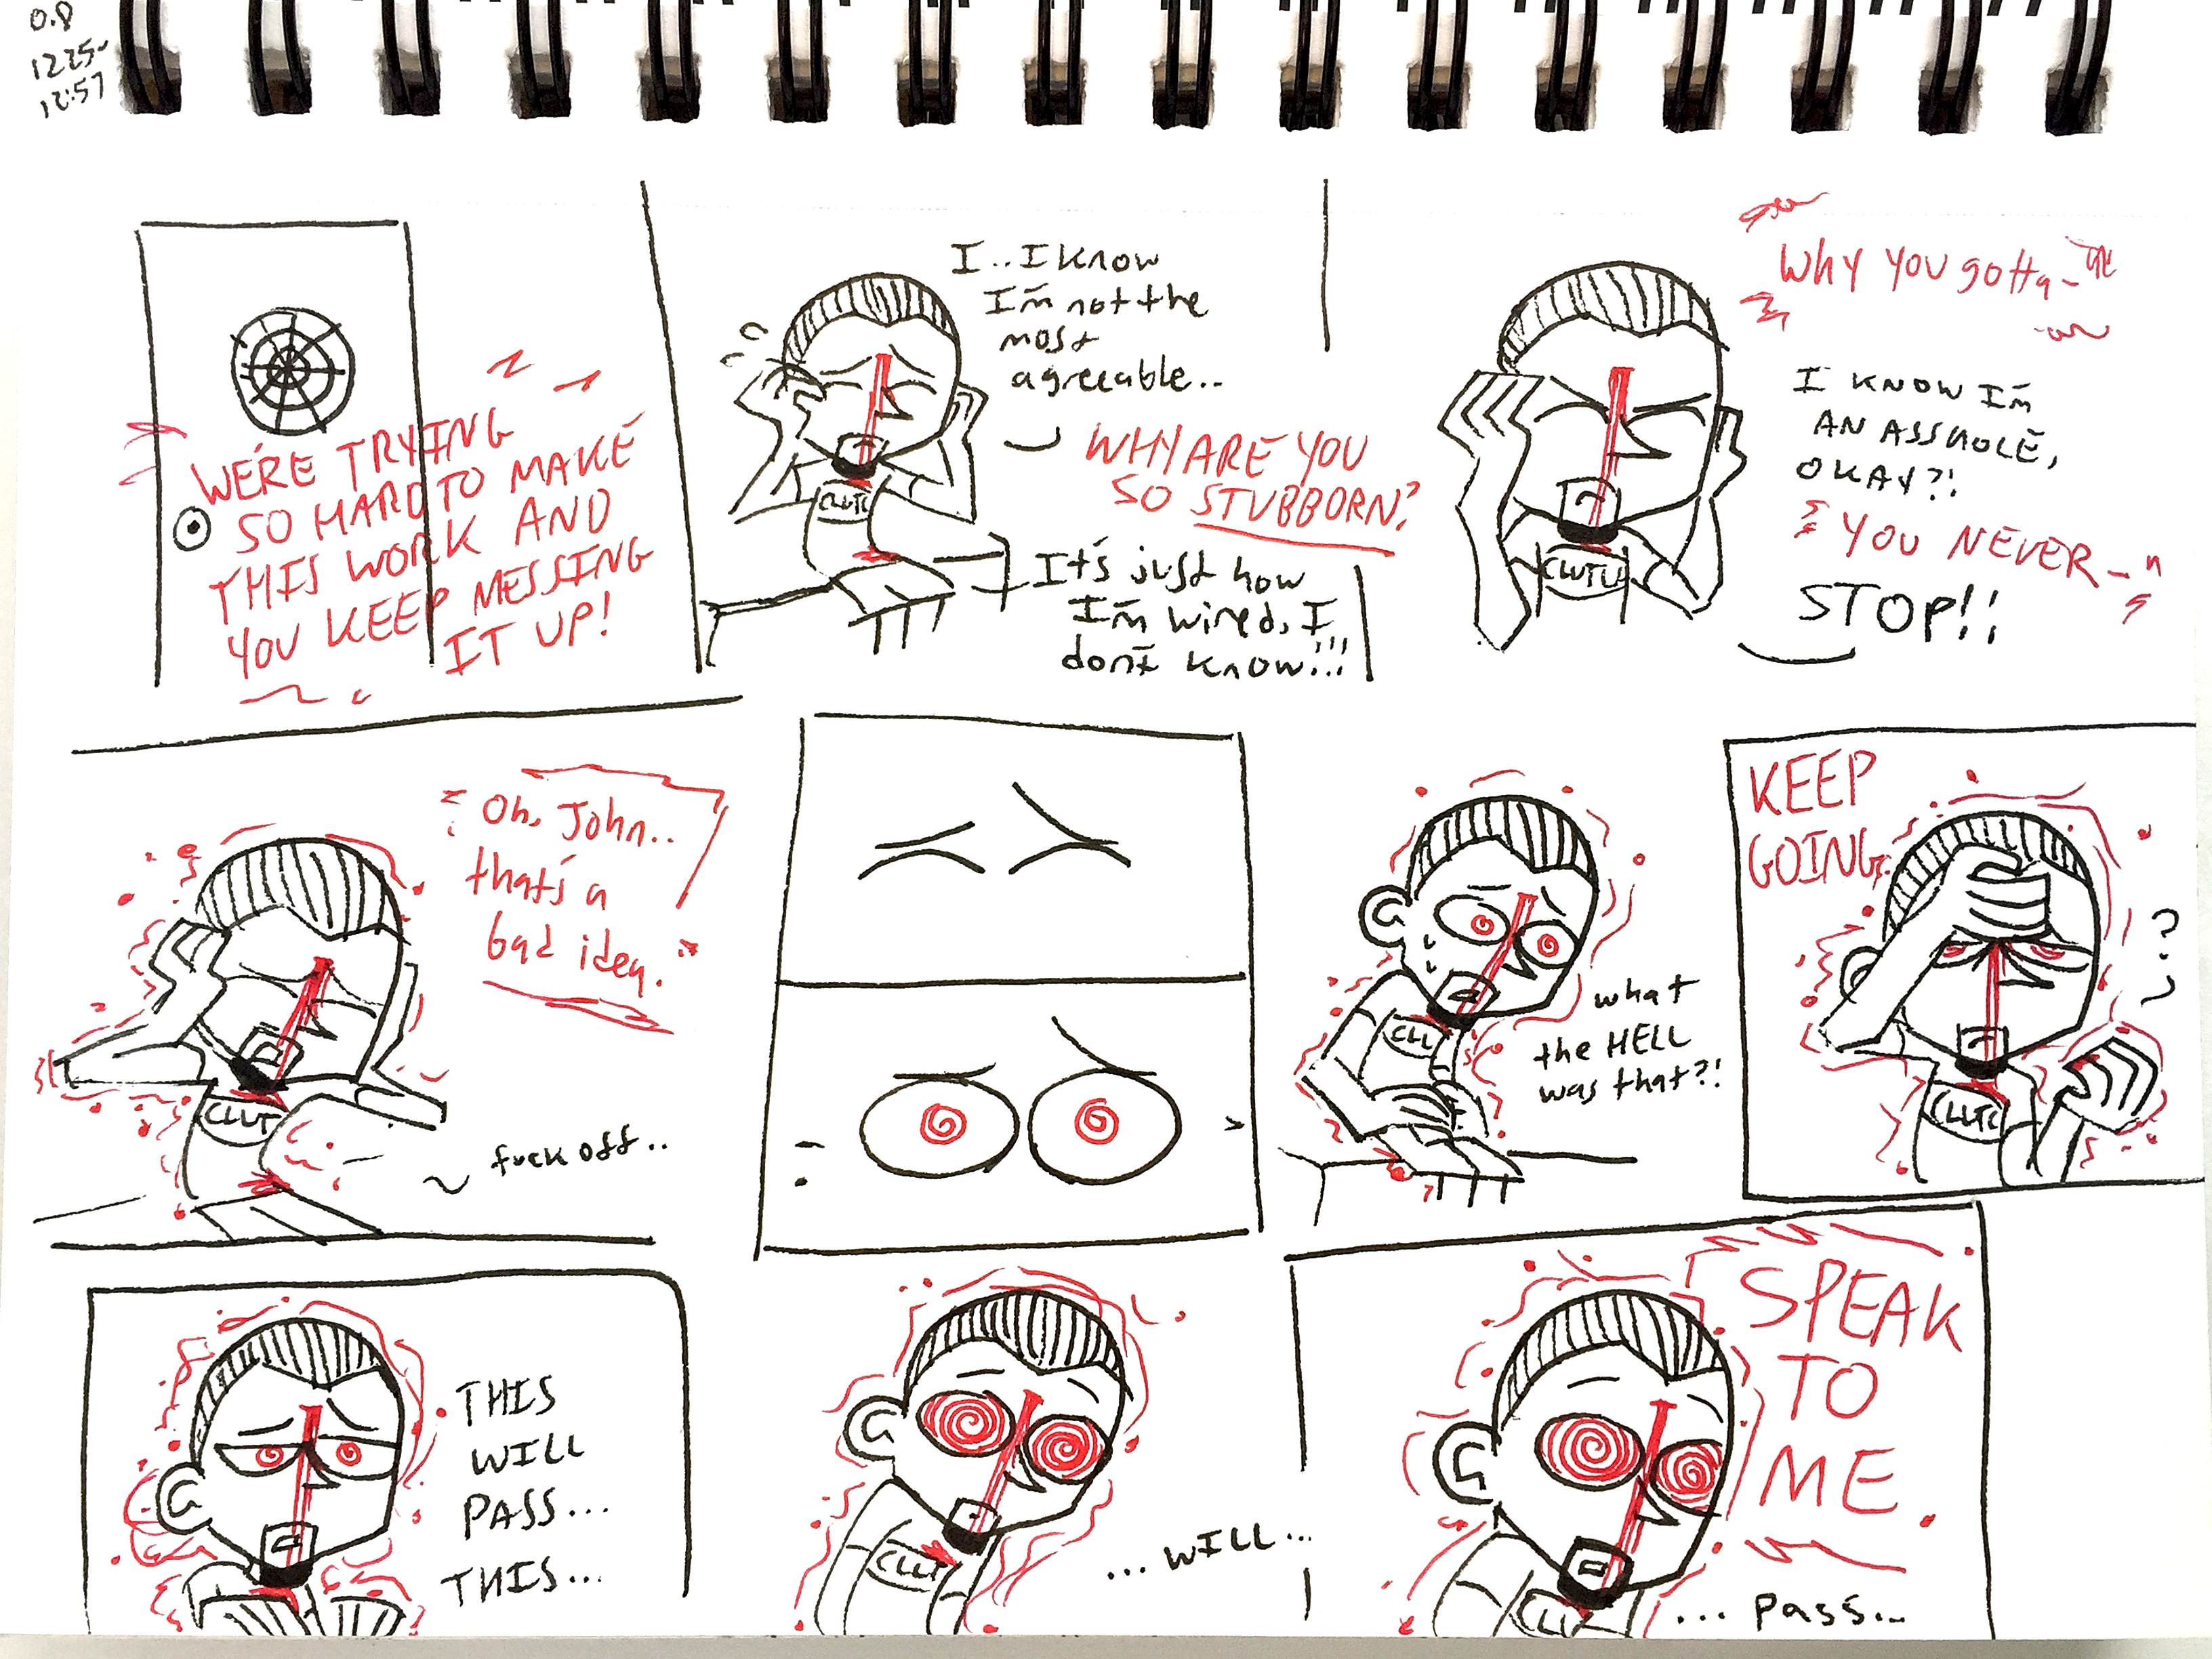 0.8
1225-
12:57
WE'RE TRYING
SO HARD TO MAKE
THIS WORK AND
YOU KEEP MESSING
IT UP!
I.. I know
I'm not the
most
agreeable..
CLUTC
WHY ARE YOU
SO STUBBORN?
It's just how
I'm wired, I
don't know!!!
Why you gotta-
I KNOW I'M
AN ASSHOLE,
OKAY?!
YOU NEVER-
STOP!!
CLUTU
"Oh, John..
that's a
bad idea."
CLUT
fuck off..
what
the HELL
was that?!
CLL
KEEP
GOING.
?
CLUTC
THIS
WILL
PASS...
THIS...
CLUT
...WILL...
SPEAK
TO
ME
CLU
...pass...